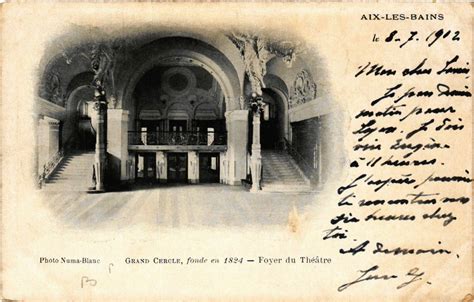 AIX-LES-BAINS
le 8-7. 1902
Mon cher Louis
Je pars demain
matin pour
Lyon. Je dois
voir
à 11 heures.
J'espère pouvoir
être
heures chez
toi
A demain
Photo Numa-Blanc
GRAND CERCLE, fondé en 1824 — Foyer du Théâtre